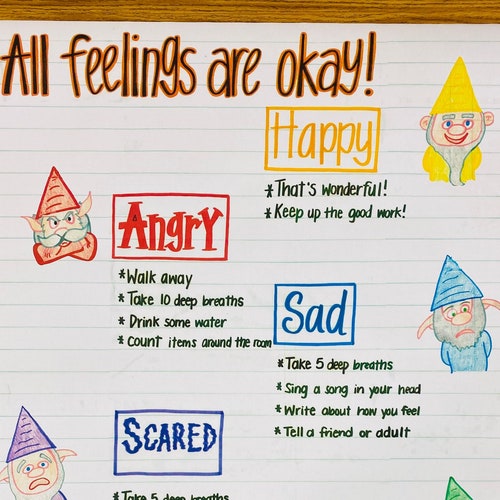 All feelings are okay!
Happy
*That's wonderful!
*Keep up the good work!
Angry
*Walk away
*Take 10 deep breaths
*Drink some water
*Count items around the room
Sad
*Take 5 deep breaths
*Sing a song in your head
*Write about how you feel
*Tell a friend or adult
Scared
*Take 5 deep breaths